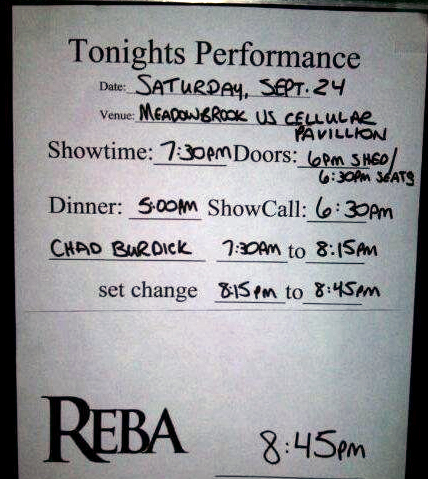 Tonights Performance
Date: SATURDAY, SEPT. 24
Venue: MEADOWBROOK US CELLULAR
PAVILLION
Showtime: 7:30PM Doors: 6PM SHED/
6:30PM SEATS
Dinner: 5:00PM ShowCall: 6:30PM
CHAD BURDICK 7:30PM to 8:15PM
set change 8:15PM to 8:45PM
REBA 8:45PM